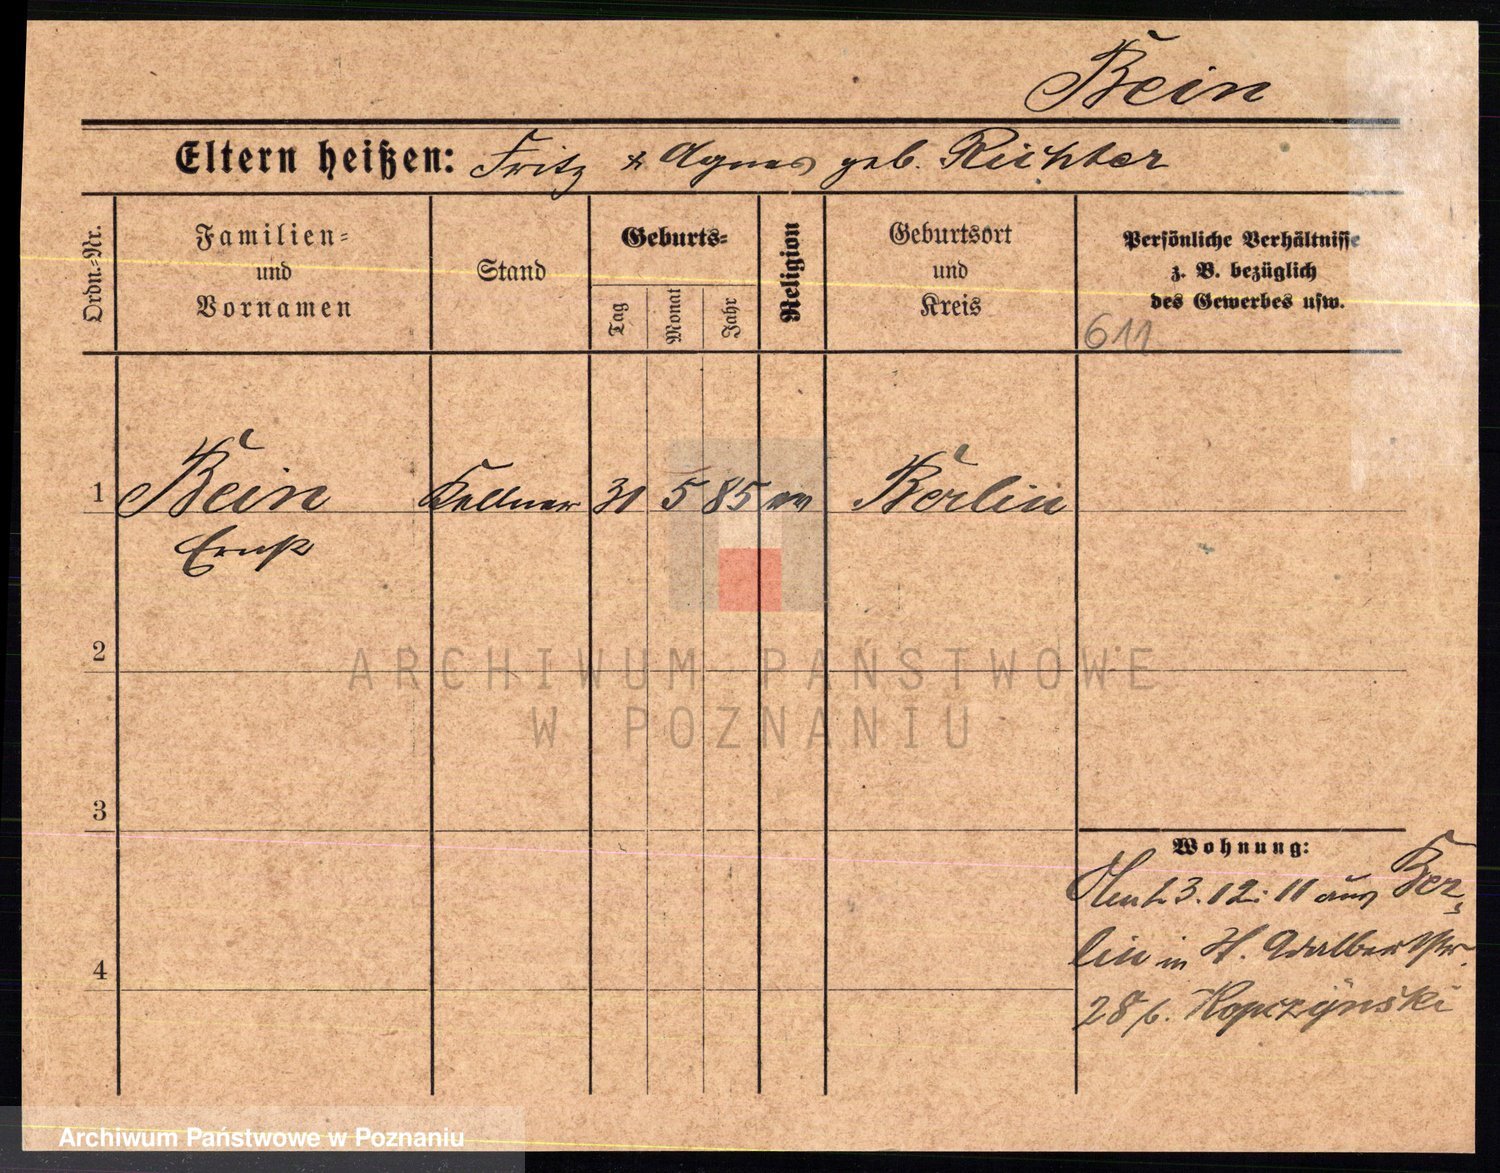 Bein
Eltern heißen: Fritz & Agnes geb. Richter
Ordn.=Nr.
Familien=
und
Vornamen
Stand
Geburts=
Tag
Monat
Jahr
Religion
Geburtsort
und
Kreis
Persönliche Verhältnisse
z. B. bezüglich
des Gewerbes usw.
611
1 Bein Kellner 30 5 85 ev Berlin
Ernst
2
3
4
Wohnung:
3.12.11 aus Ber-
lin in St. Adalbertstr.
28 b. Kopczynski
ARCHIWUM PAŃSTWOWE
W POZNANIU
Archiwum Państwowe w Poznaniu